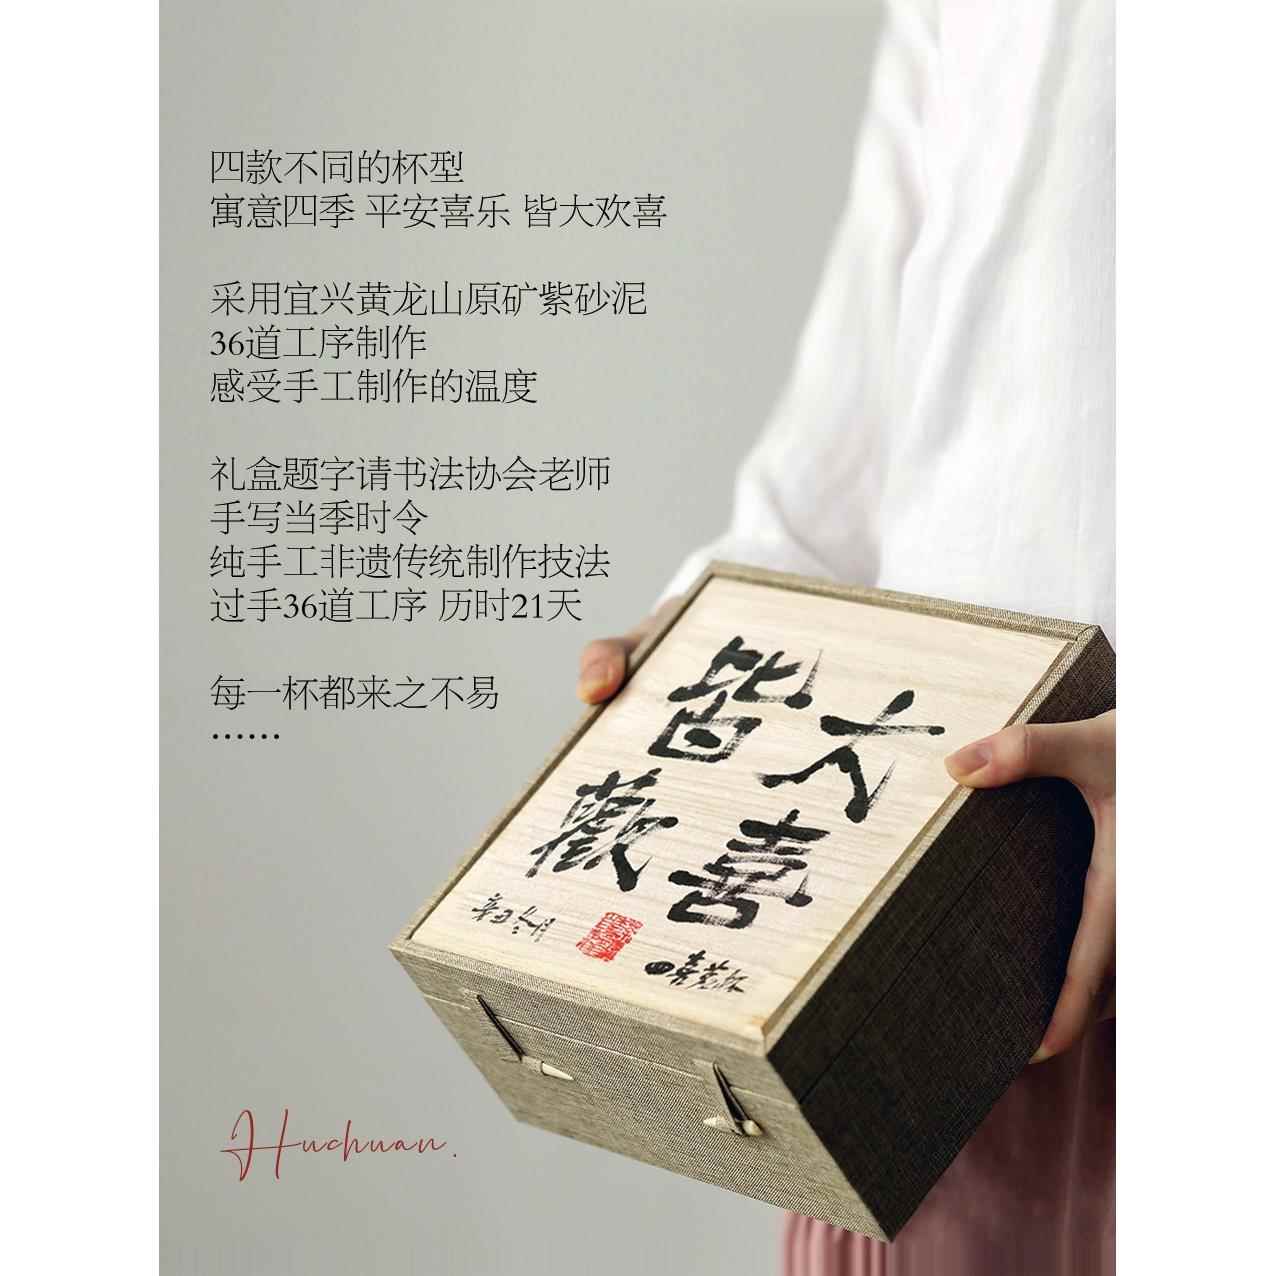 四款不同的杯型
寓意四季 平安喜乐 皆大欢喜
采用宜兴黄龙山原矿紫砂泥
36道工序制作
感受手工制作的温度
礼盒题字请书法协会老师
手写当季时令
纯手工非遗传统制作技法
过手36道工序 历时21天
每一杯都来之不易
……
皆大
歡喜
Huchuan.